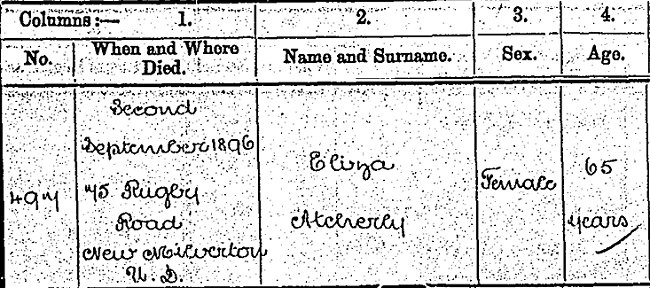 Columns:— 1. 2. 3. 4.
No. When and Where Died. Name and Surname. Sex. Age.
497
Second
September 1896
75 Rugby
Road
New Milverton
U. D.
Eliza
Atcherly
Female
65
years